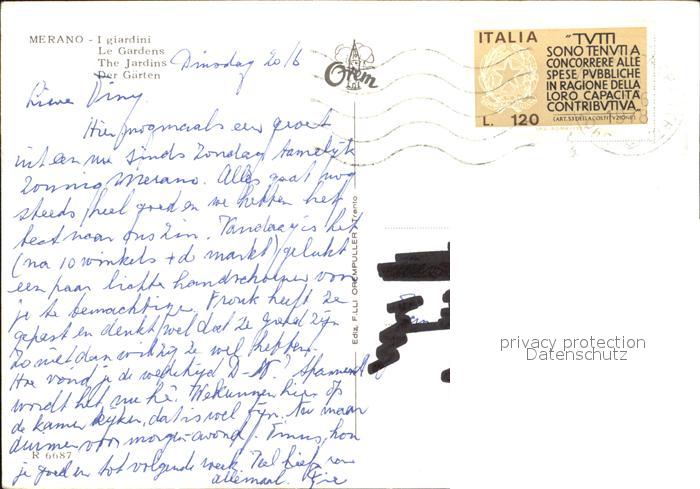 MERANO - I giardini
Le Gardens
The Jardins
Der Gärten
Orem
ITALIA
"TVTTI
SONO TENVTI A
CONCORRERE ALLE
SPESE PVBBLICHE
IN RAGIONE DELLA
LORO CAPACITÀ
CONTRIBVTIVA"
(ART. 53 DELLA COSTITVZIONE)
L. 120
Dinsdag 20/6
Lieve
Hier nogmaals een groet
uit een nu sinds Zondag tamelijk
zonnig Merano. Alles gaat nog
steeds heel goed en we hebben het
best naar ons zin. Vandaag is het
(na 10 winkels + d markt) gelukt
een paar lichte handschoenen voor
je te bemachtigen. Frouk heeft ze
gepast en denkt wel dat ze goed zijn
zo niet dan wil zij ze wel hebben.
Hoe vond je de wedstrijd D-N? Spannend
wordt het nu hè. We kunnen hier op
de kamer kijken, dat is wel fijn. Nu maar
duimen voor morgenavond.
je goed en tot volgende week. Veel liefs van
allemaal.
R 6687
Ediz. F.LLI OREMPULLER - Trento
privacy protection
Datenschutz